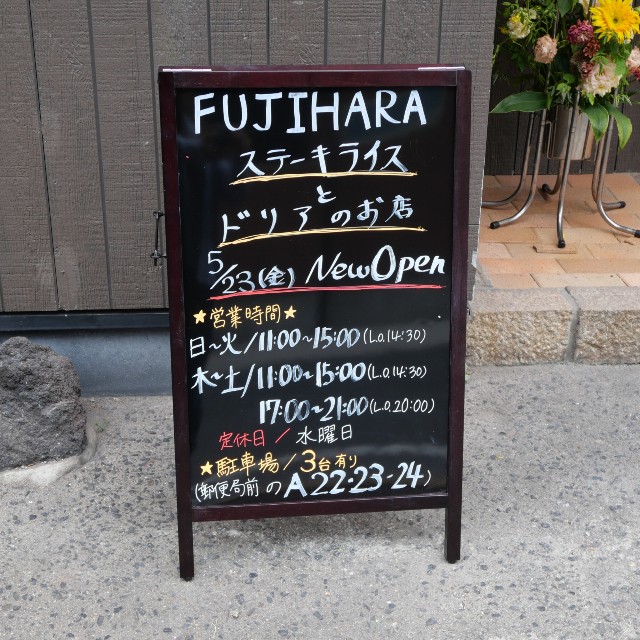 FUJIHARA
ステーキライス
と
ドリアのお店
5/23(金) New Open
★営業時間★
日～火/11:00～15:00(L.o.14:30)
木～土/11:00～15:00(L.o.14:30)
17:00～21:00(L.o.20:00)
定休日/水曜日
★駐車場/3台有り
(郵便局前のA22・23・24)